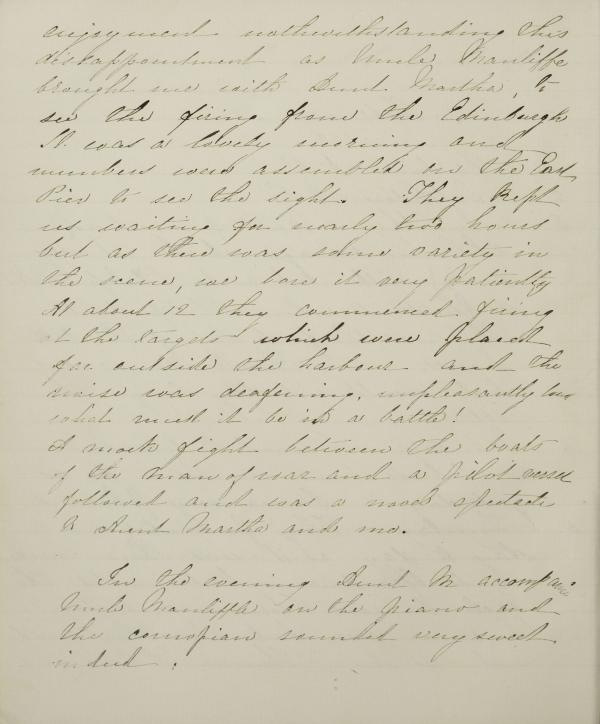 enjoyment nothwithstanding this
dissappointment as Uncle Wanliffe
brought me with Aunt Martha, to
see the firing from the Edinburgh
It was a lovely morning and
numbers were assembled on the East
Pier to see the sight. They kept
us waiting for nearly two hours
but as there was some variety in
the scene, we bore it very patiently
At about 12 they commenced firing
at the targets which were placed
far outside the harbour and the
noise was deafening, unpleasantly loud
what must it be in a battle!
A mock fight between the boats
of the man of war and a pilot vessel
followed and was a novel spectacle
to Aunt Martha and me.
In the evening Aunt M accompanied
Uncle Wanliffe on the piano and
the cornopian sounded very sweet
indeed.